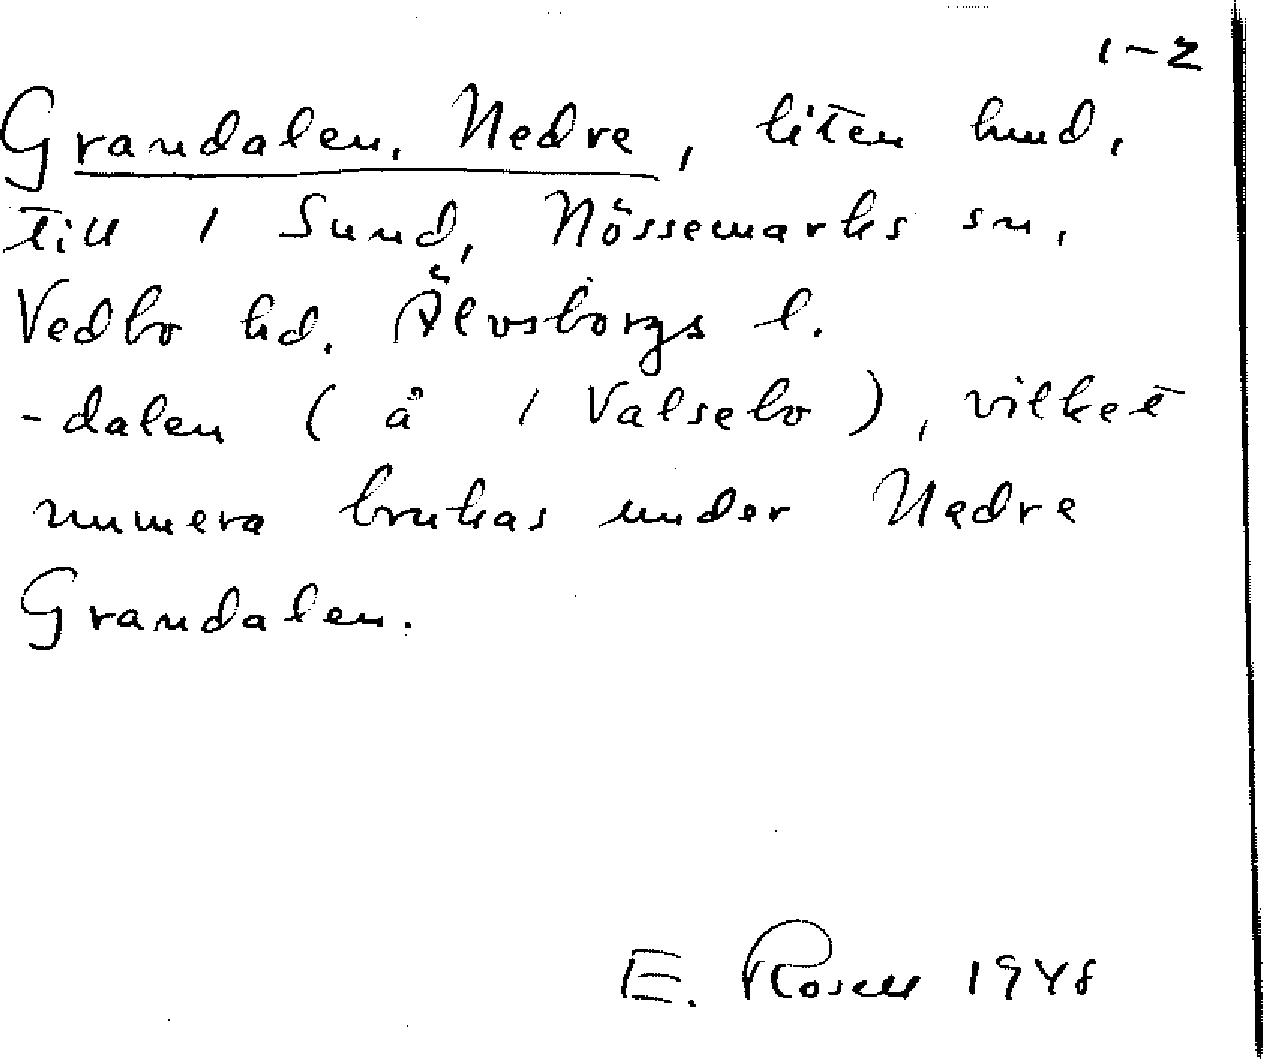 1-2
Grandalen, Nedre, liten hmd,
till 1 Sund, Nössemarks sn,
Vedbo hd. Älvsborgs l.
-dalen (å 1 Valsebo), vilket
numera brukas under Nedre
Grandalen.
E. Rosell 1948